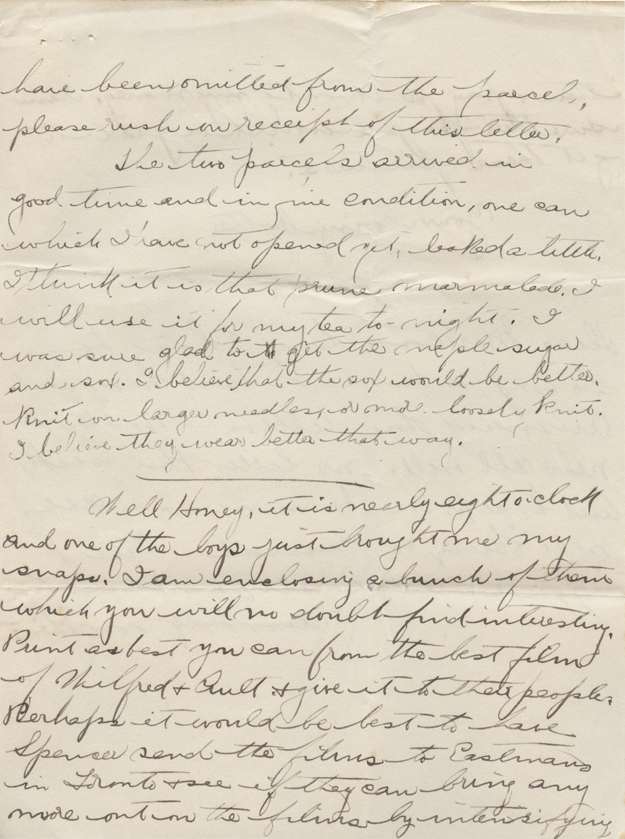 have been omitted from the parcel,
please rush on receipt of this letter.
The two parcels arrived in
good time and in fine condition, one can
which I have not opened yet, leaked a little.
I think it is that prune marmalade. I
will use it for my tea to-night. I
was sure glad to get the maple sugar
and sox. I believe that the sox would be better
knit on larger needles, or more loosely knit.
I believe they wear better that way.
Well Honey, it is nearly eight o'clock
and one of the boys just brought me my
snaps. I am enclosing a bunch of them
which you will no doubt find interesting.
Print as best you can from the best films
of Wilfred & Ault & give it to their people.
Perhaps it would be best to have
Spencer send the films to Eastmans
in Toronto & see if they can bring any
more out on the films by intensifying